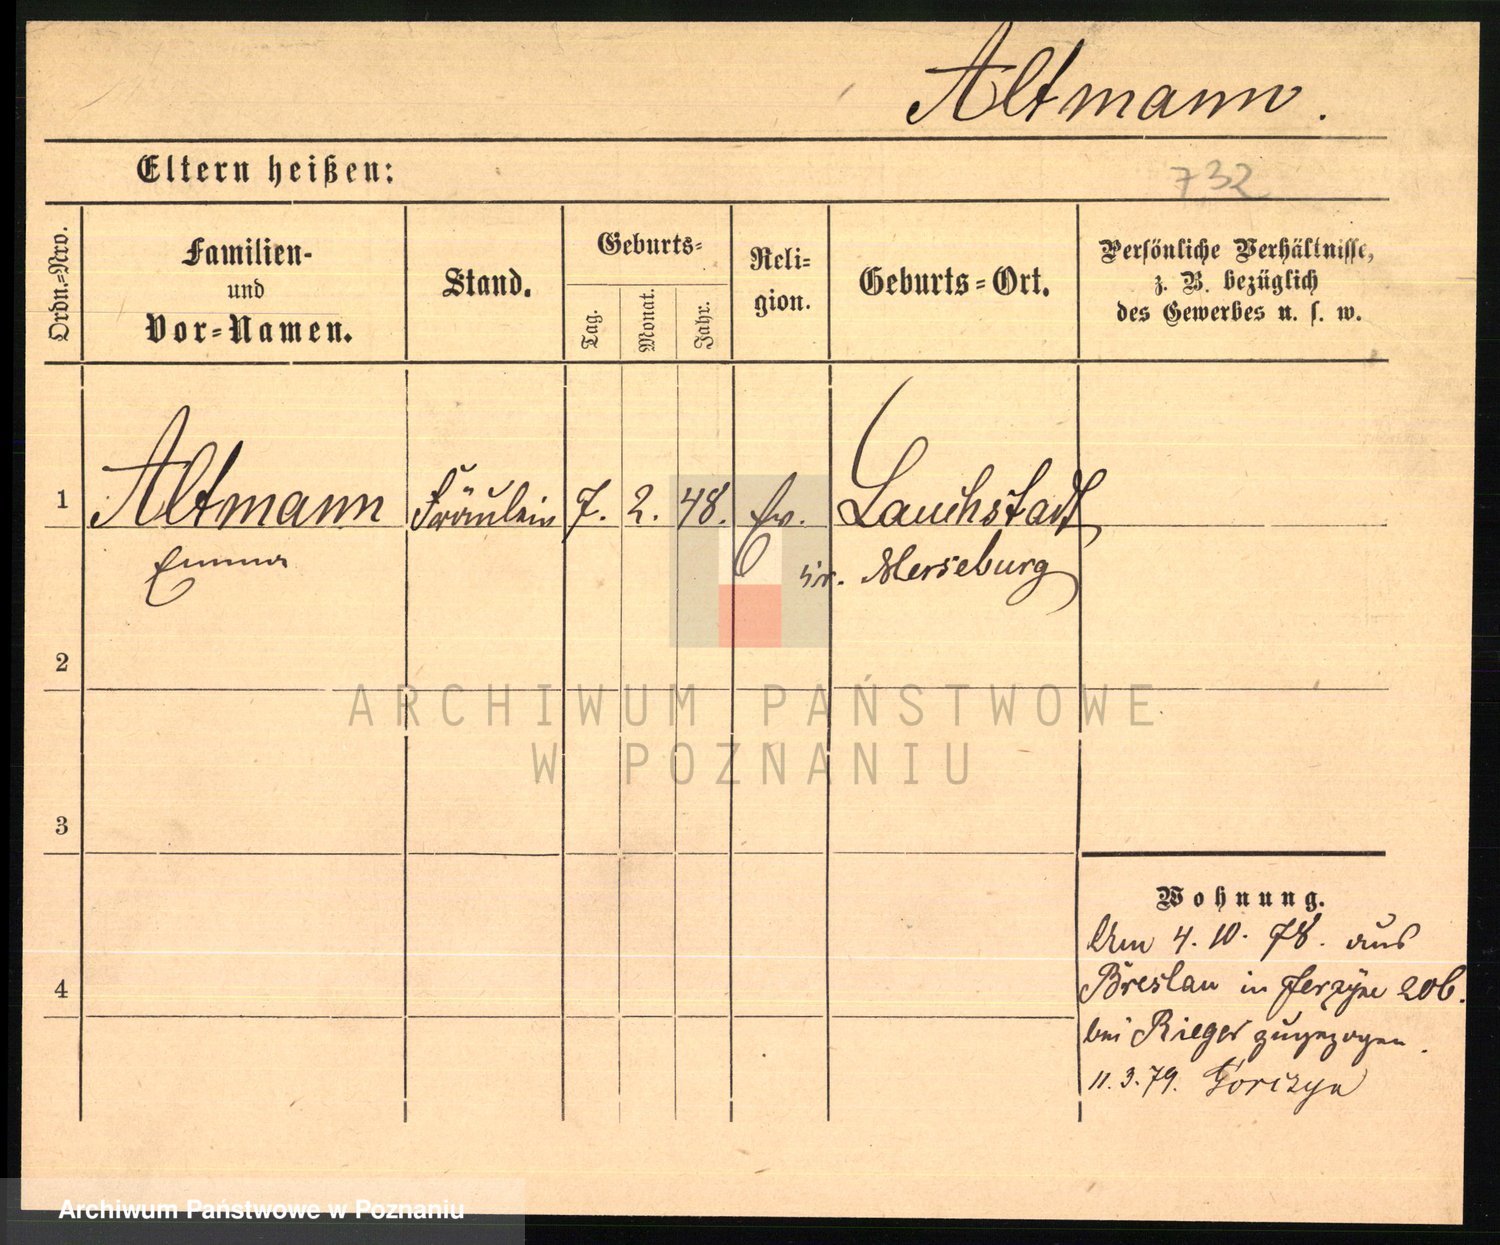 Altmann.
Eltern heißen:
732
Ordn.-Nro.
Familien-
und
Vor-Namen.
Stand.
Geburts-
Tag.
Monat.
Jahr.
Reli-
gion.
Geburts-Ort.
Persönliche Verhältnisse,
z. B. bezüglich
des Gewerbes u. s. w.
1 Altmann Fräulein 7. 2. 48. Ev. Lauchstadt
Emma Kr. Merseburg
2
ARCHIWUM PAŃSTWOWE
W POZNANIU
3
Wohnung.
Am 4. 10. 78. aus
4
Breslau in Jerzyce 20b.
bei Rieger zugezogen.
11.3.79. Gorczyn
Archiwum Państwowe w Poznaniu